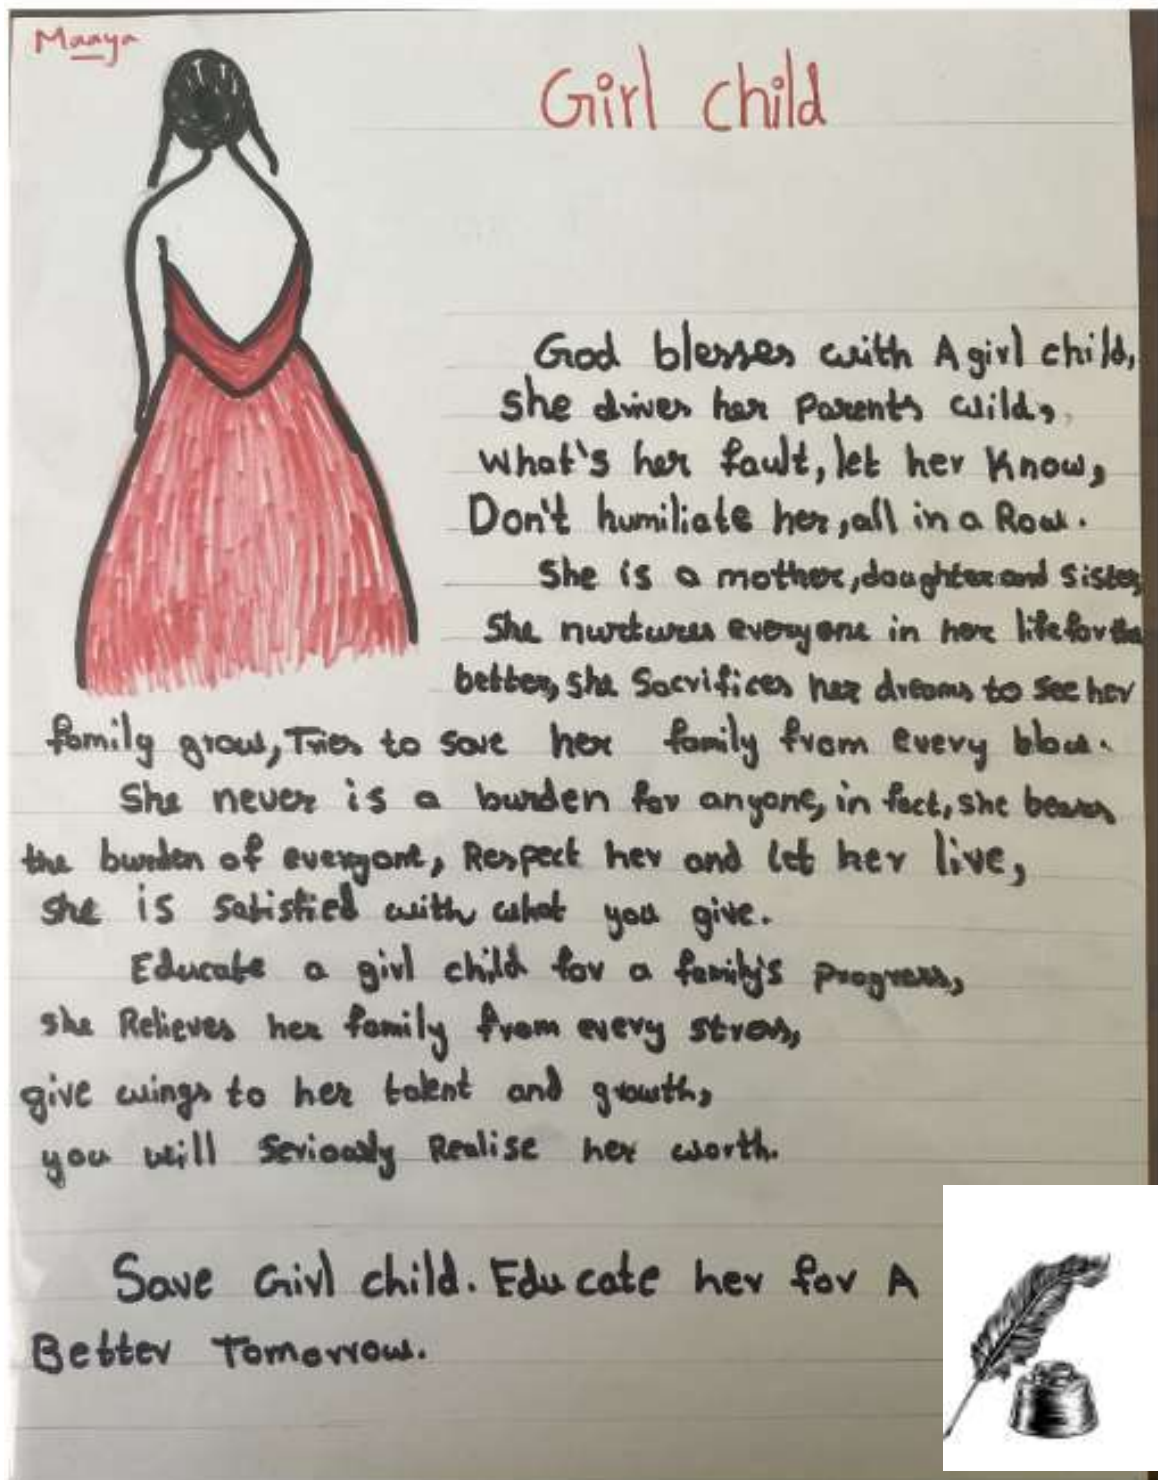 Maaya
Girl child
God blesses with A girl child,
she drives her parents wild,
what's her fault, let her know,
Don't humiliate her, all in a Row.
She is a mother, daughter and sister,
She nurtures everyone in her life for the
better, she Sacrifices her dreams to see her
family grow, Tries to save her family from every blow.
She never is a burden for anyone, in fact, she bears
the burden of everyone, Respect her and let her live,
she is satisfied with what you give.
Educate a girl child for a family's progress,
she Relieves her family from every stress,
give wings to her talent and growth,
you will seriously Realise her worth.
Save Girl child. Educate her for A
Better Tomorrow.